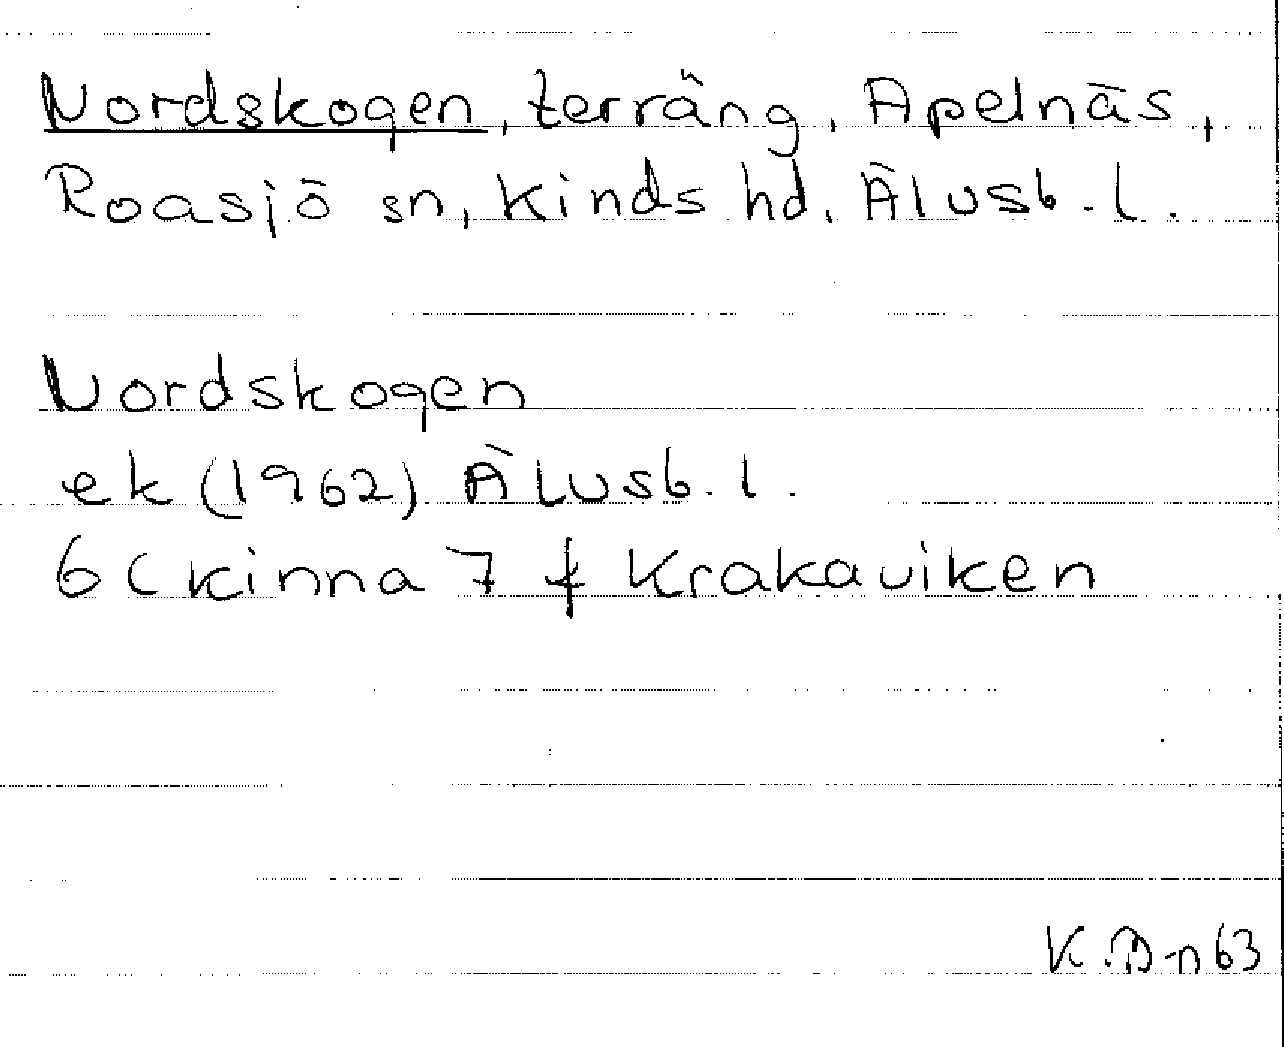 Nordskogen, terräng, Apelnäs,
Roasjö sn, Kinds hd, Älvsb. l.
Nordskogen
ek (1962) Älvsb. l.
6C Kinna 7 f Krakaviken
K.B-n 63